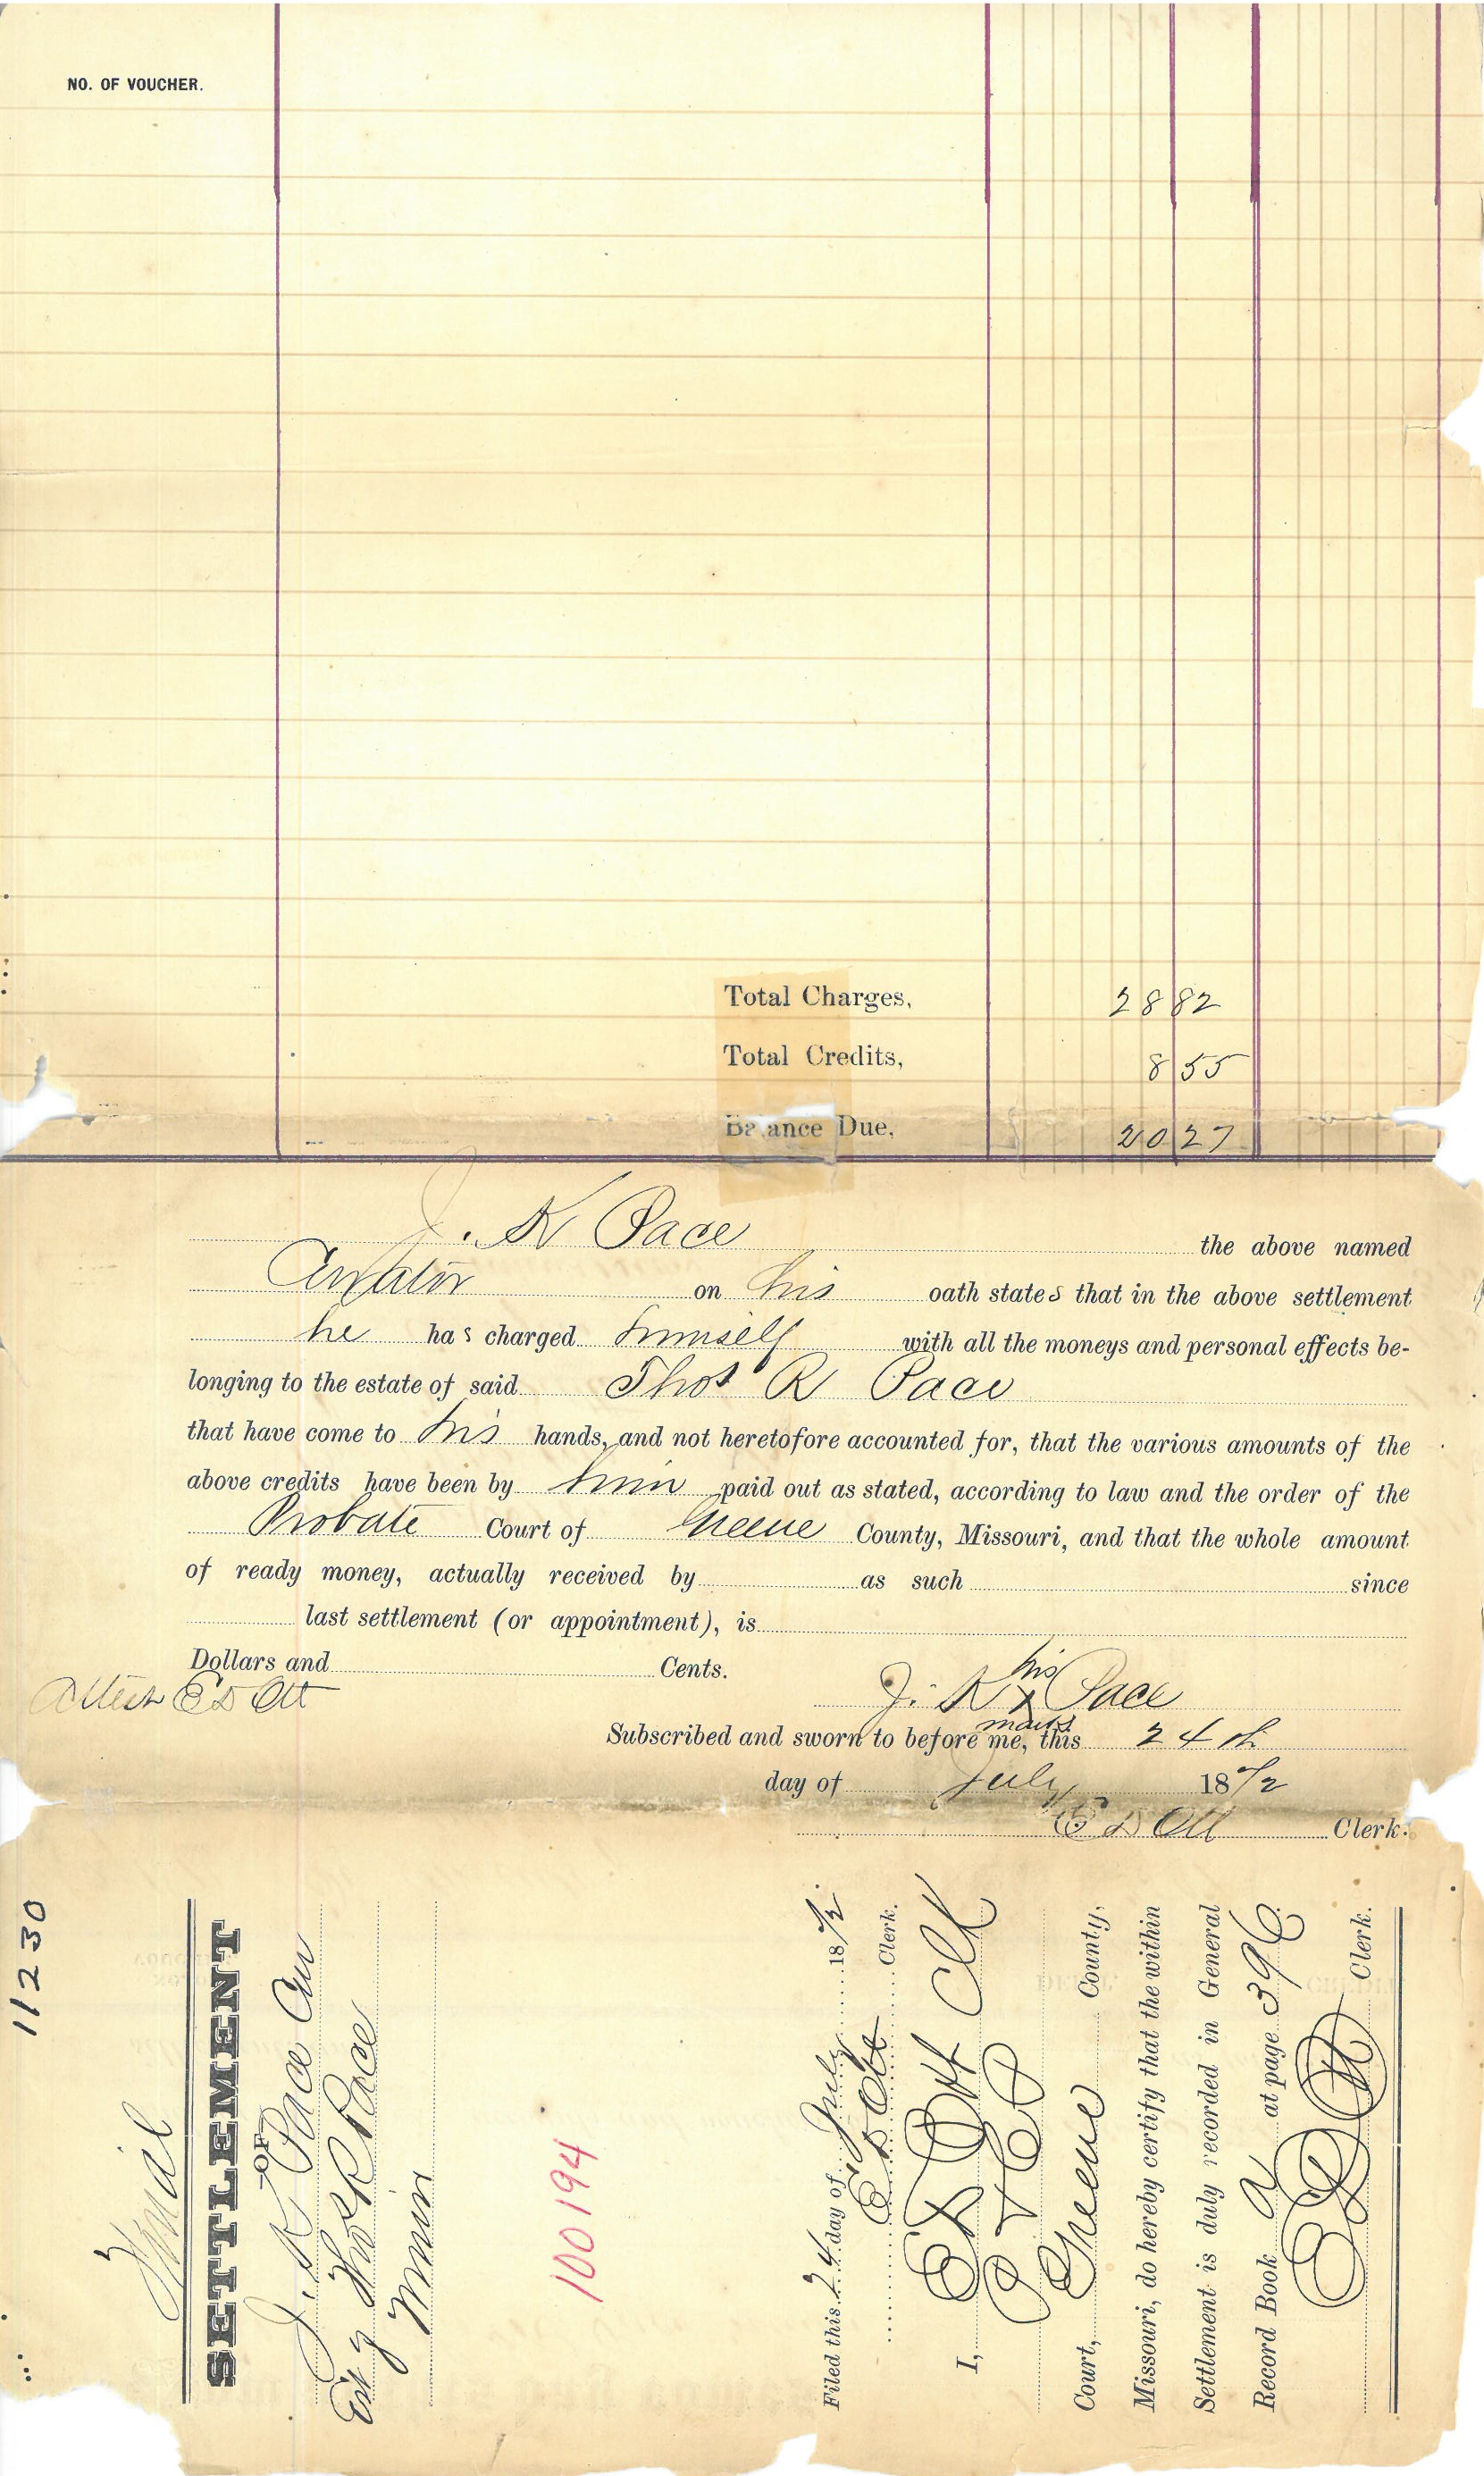 NO. OF VOUCHER.
Total Charges, 28 82
Total Credits, 8 55
Balance Due, 20 27
J. K Pace the above named
Curator on his oath states that in the above settlement
he has charged himself with all the moneys and personal effects be-
longing to the estate of said Thos R Pace
that have come to his hands, and not heretofore accounted for, that the various amounts of the
above credits have been by him paid out as stated, according to law and the order of the
Probate Court of Greene County, Missouri, and that the whole amount
of ready money, actually received by as such since
last settlement (or appointment), is
Dollars and Cents.
his
Attest E D Ott J. K x Pace
mark
Subscribed and sworn to before me, this 24th
day of July 18
E D Ott Clerk.
11230
Final
SETTLEMENT
OF
J. K Pace Cur
Est of Thos R Pace
Minor
100194
Filed this 24 day of July 18
E D Ott Clerk.
I, E D Ott Clk
Court, Greene County,
Missouri, do hereby certify that the within
Settlement is duly recorded in General
Record Book a at page 396
E D Ott Clerk.